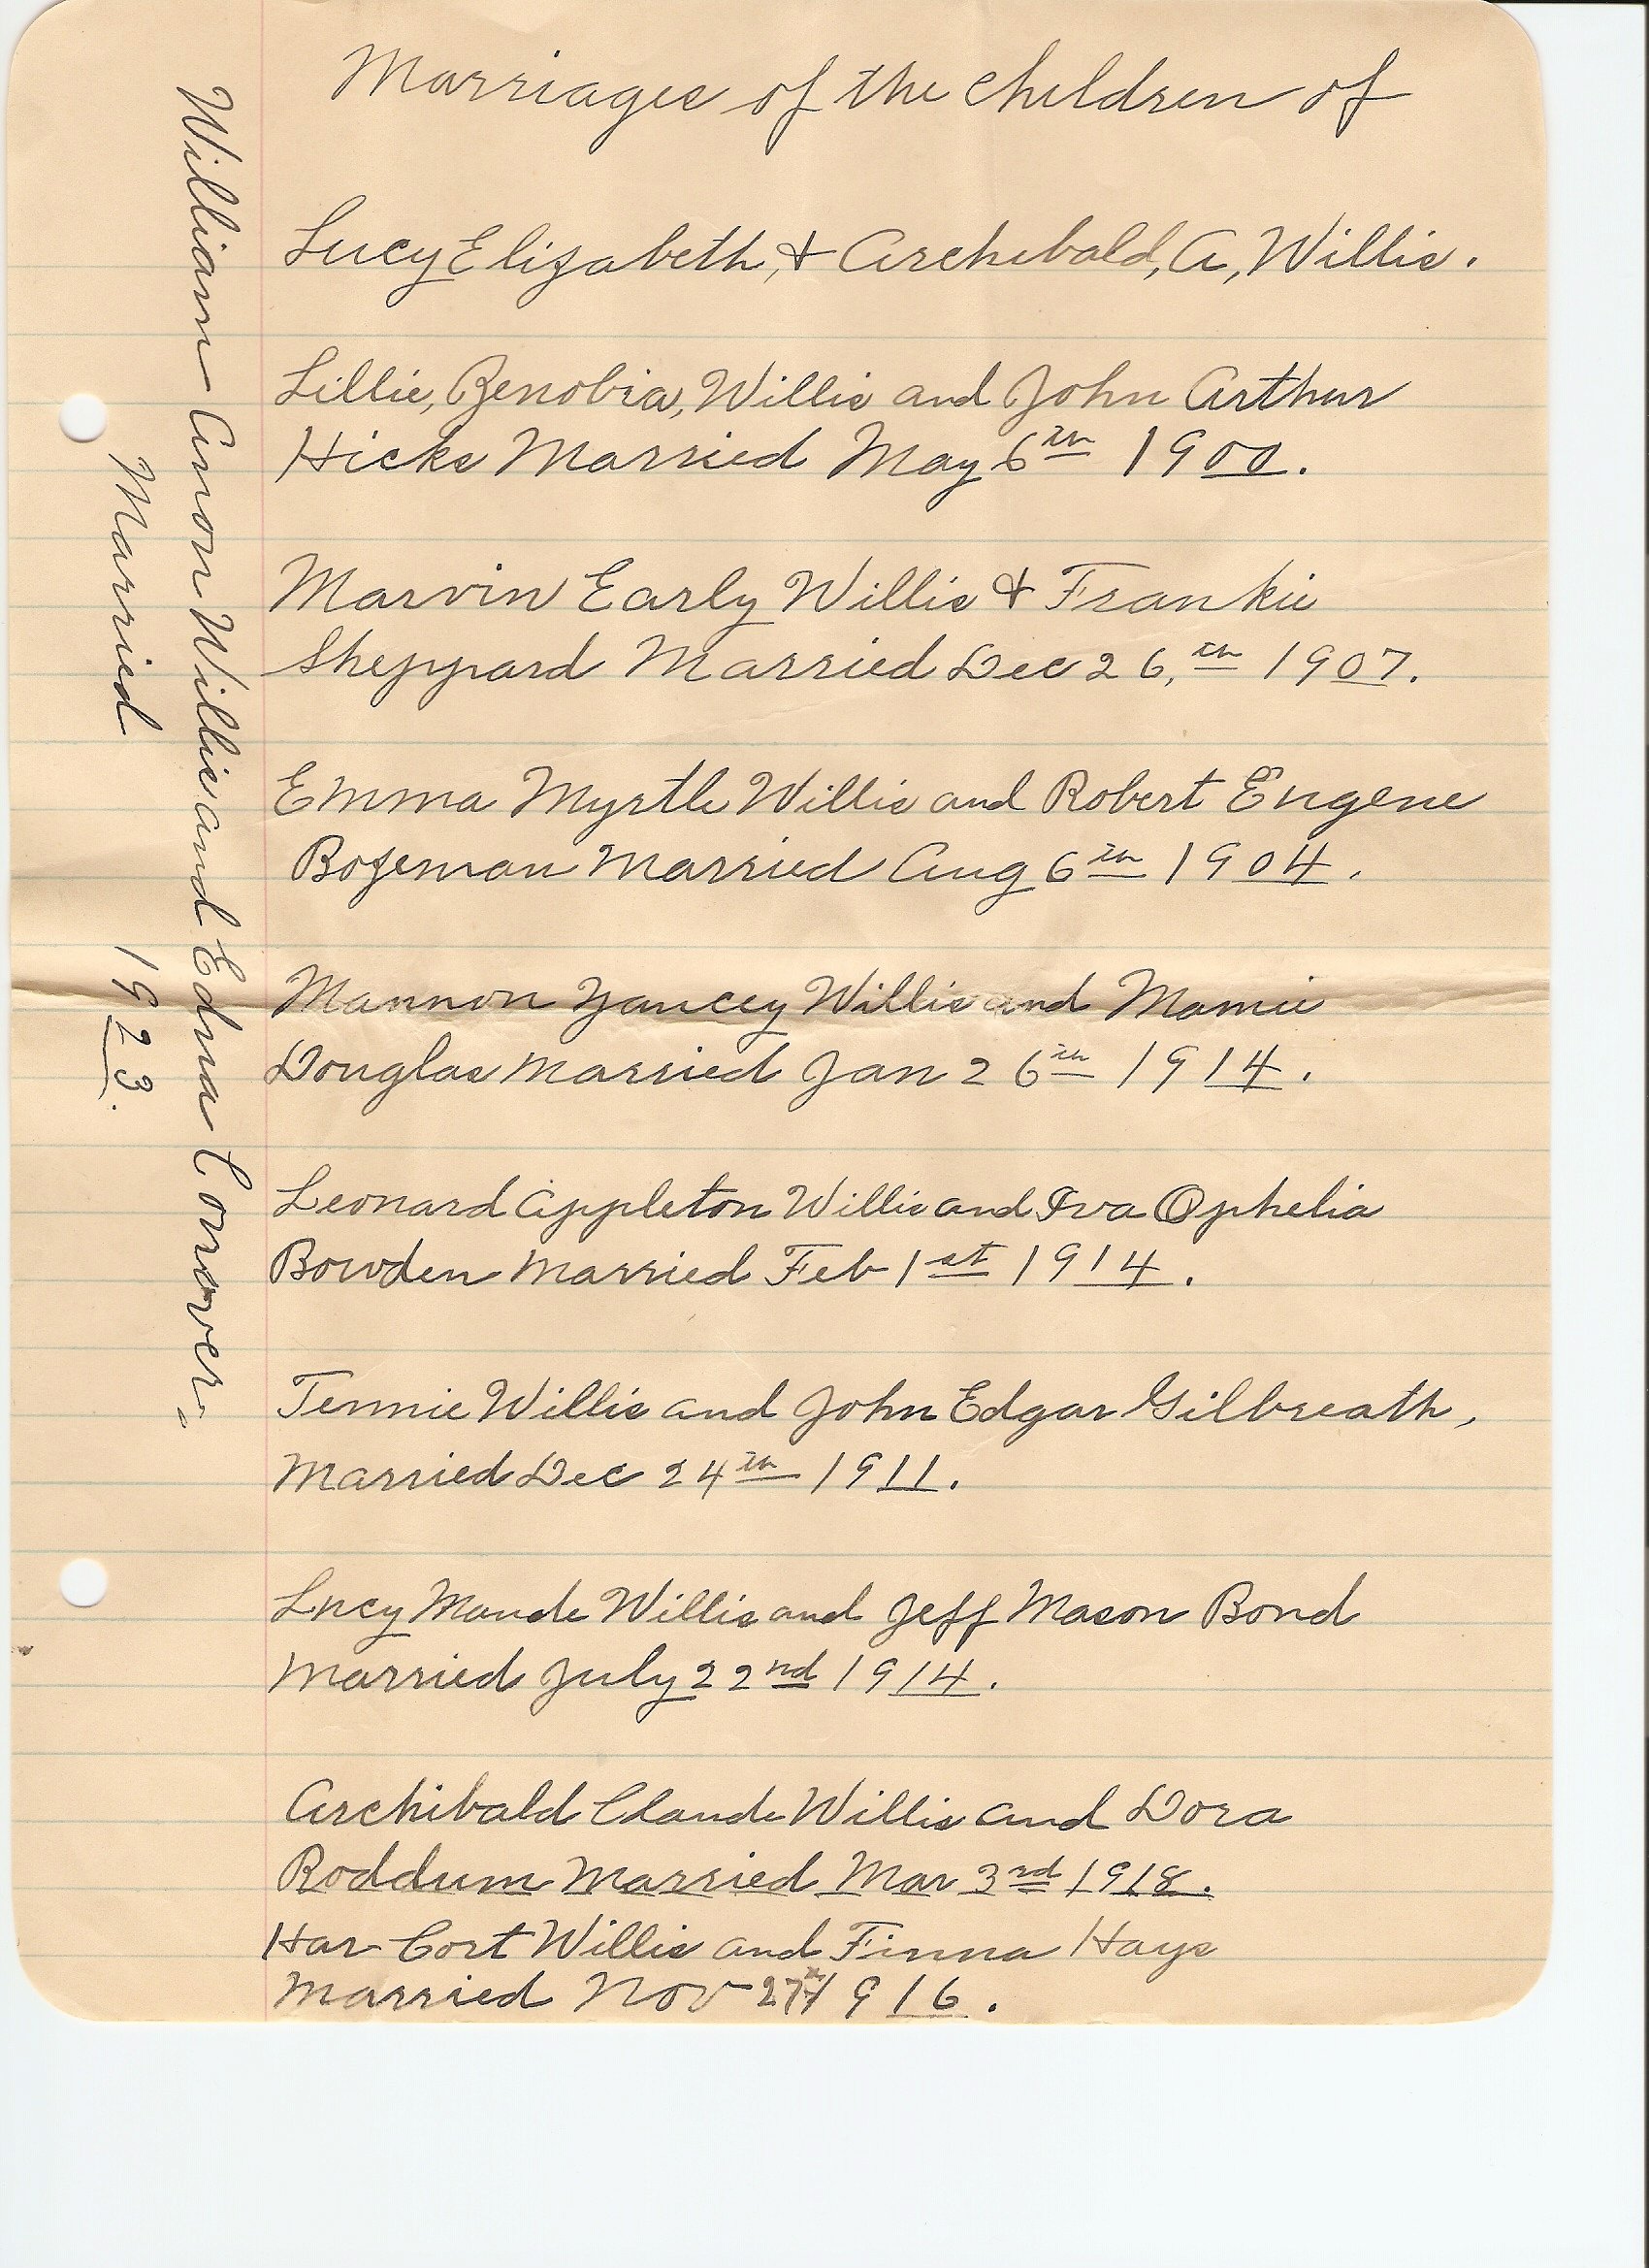 Marriages of the children of
Lucy Elizabeth, & Archibald, A, Willis.
Lillie, Zenobia, Willis and John Arthur
Hicks Married May 6th 1900.
Marvin Early Willis & Frankie
Sheppard Married Dec 26,th 1907.
Emma Myrtle Willis and Robert Eugene
Bozeman Married Aug 6th 1904.
Mannon Yancey Willis and Mamie
Douglas Married Jan 26th 1914.
Leonard Appleton Willis and Iva Ophelia
Bowden Married Feb 1st 1914.
Tennie Willis and John Edgar Gilbreath,
Married Dec 24th 1911.
Lucy Maude Willis and Jeff Mason Bond
Married July 22nd 1914.
Archibald Claude Willis and Dora
Roddum Married Mar 3rd 1918.
Har Cort Willis and Finna Hays
Married Nov 27th 1916.
William Amon Willis and Edna Conover.
Married 1923.